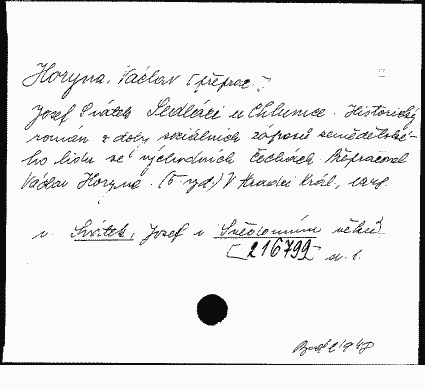 Horyna, Václav [přeprac.]
Josef Svátek Sedláci u Chlumce. Historický
román z doby sociálních zápasů zemědělské-
ho lidu ve východních Čechách. Přepracoval
Václav Horyna. (5 vyd.) V Hradci Král,
v. Svátek, Josef v Svědomím věků
[216799 d. 1.